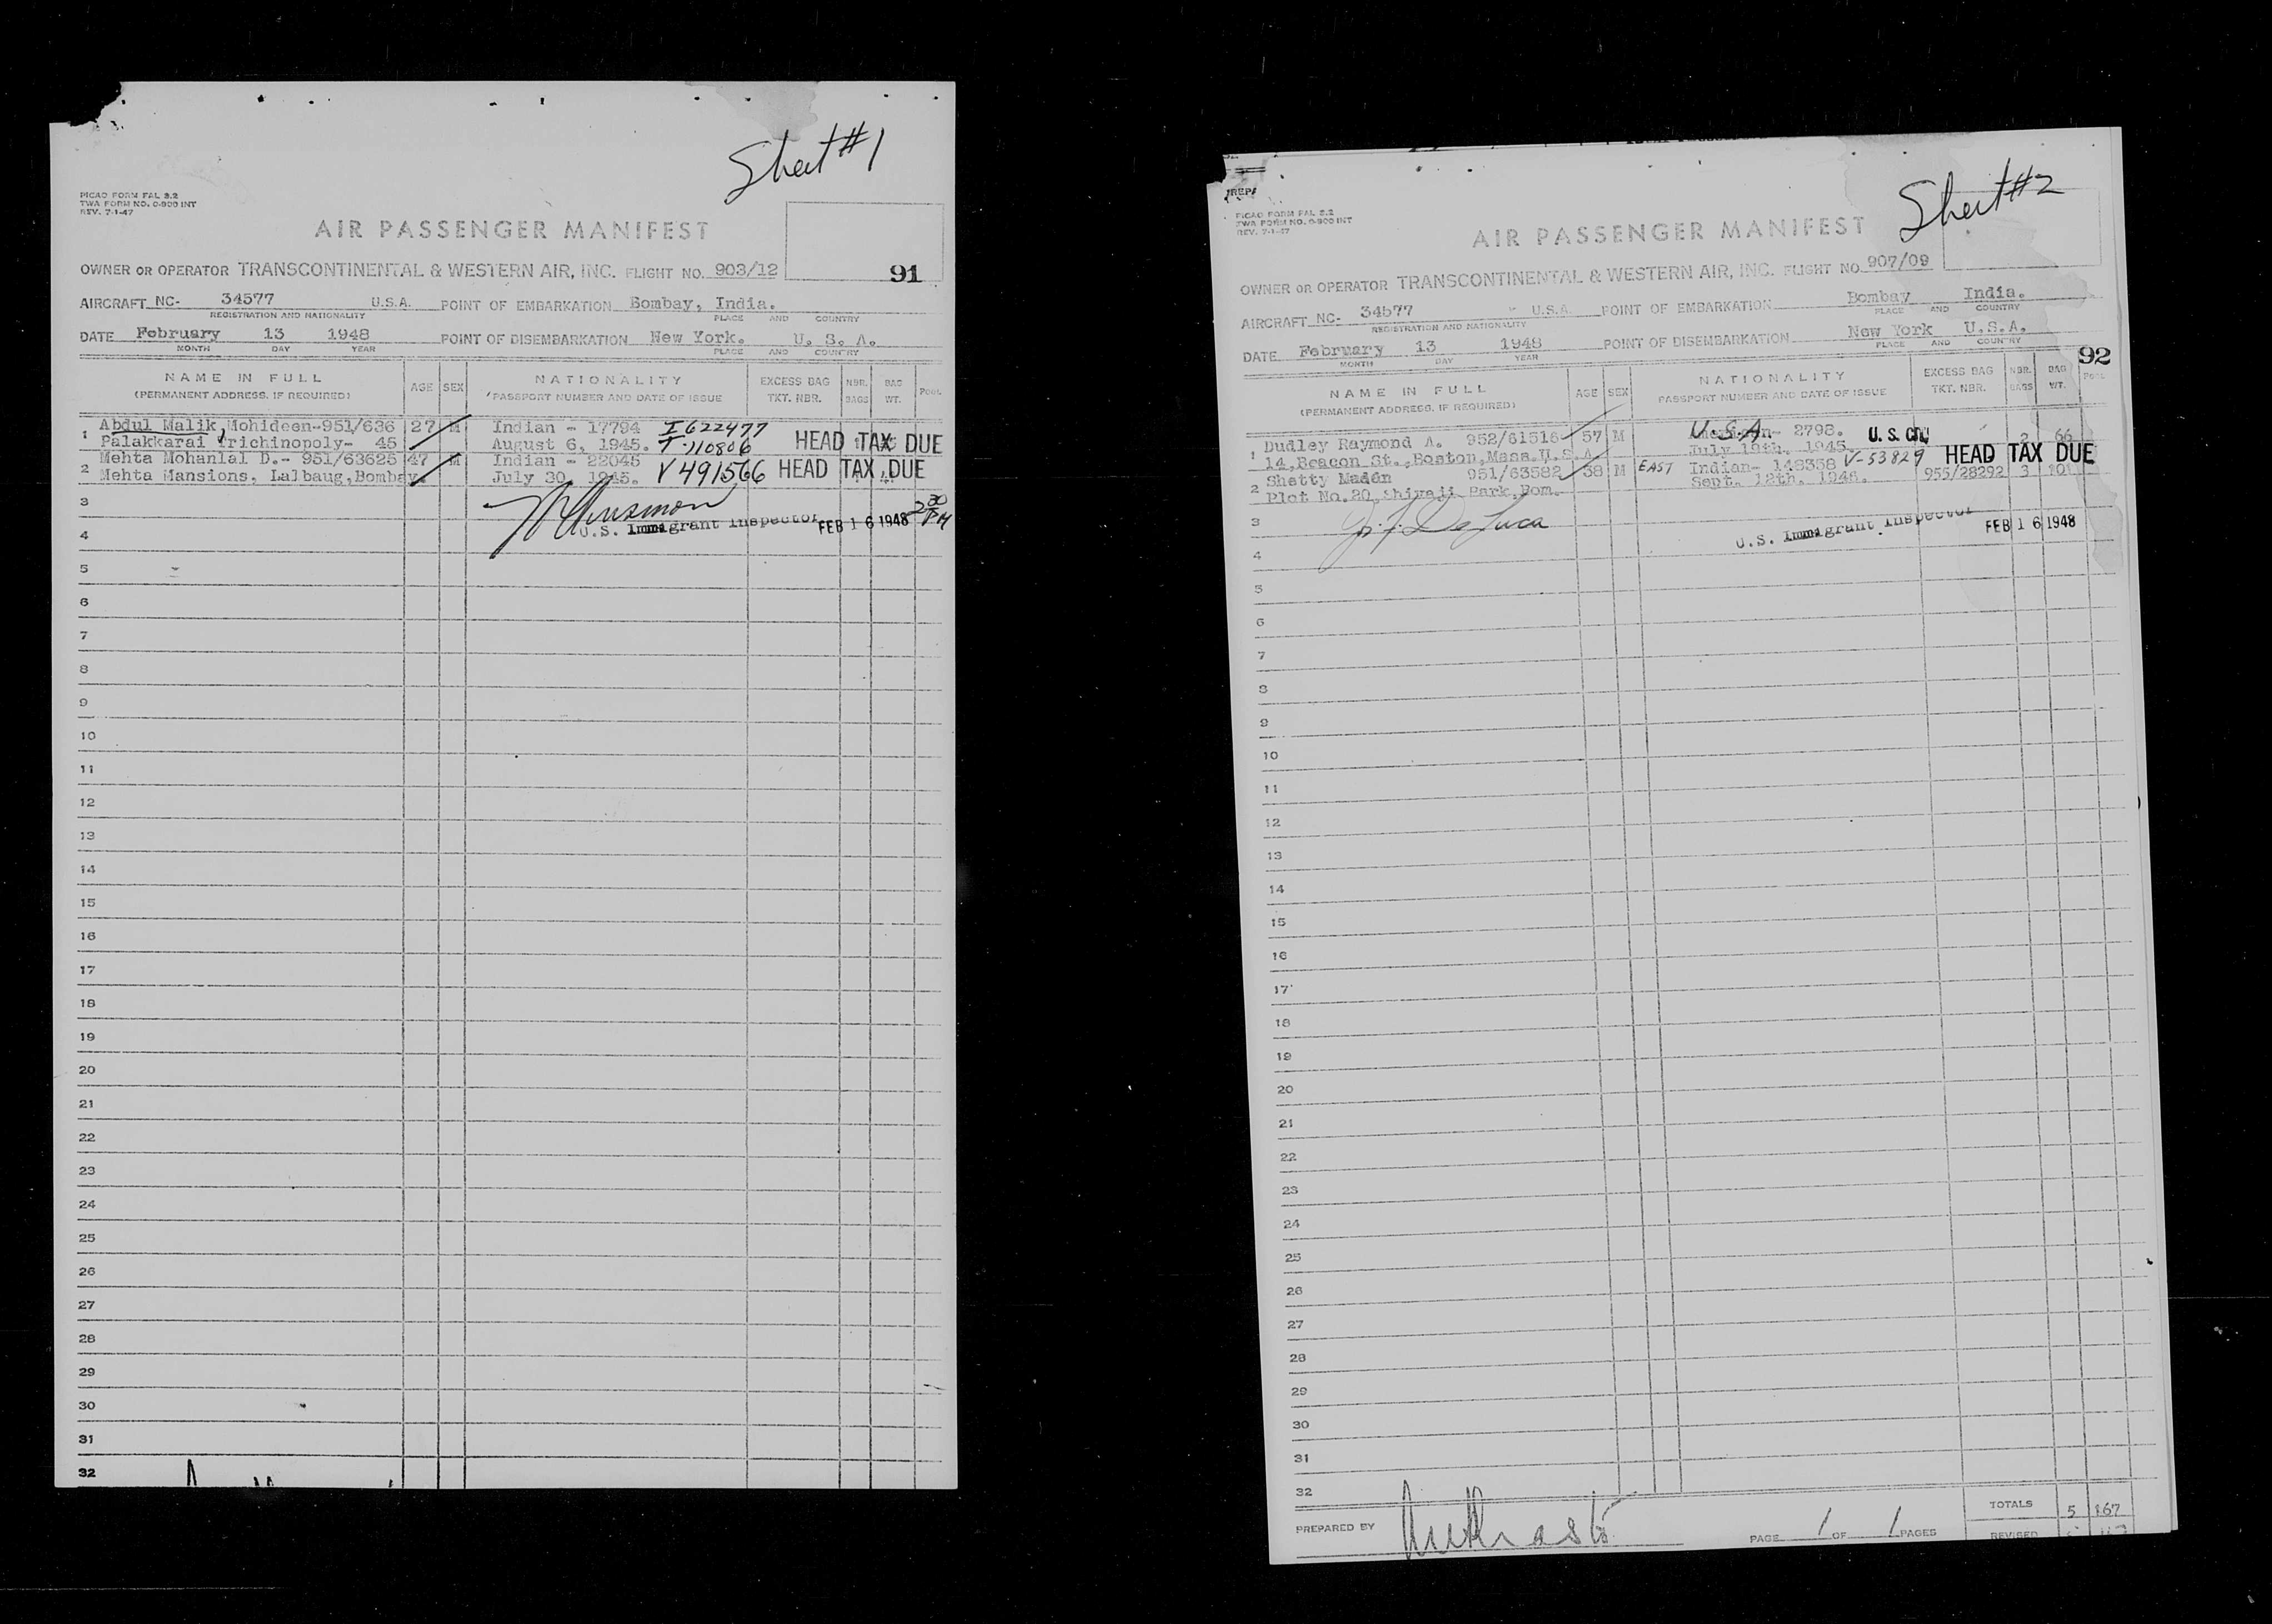 Sheet #1
PICAO FORM FAL 3.2
TWA FORM NO. O-900 INT
REV. 7-1-47
AIR PASSENGER MANIFEST
91
OWNER OR OPERATOR TRANSCONTINENTAL & WESTERN AIR, INC. FLIGHT NO. 903/12
AIRCRAFT NC- 34577 U.S.A. POINT OF EMBARKATION Bombay, India.
REGISTRATION AND NATIONALITY PLACE AND COUNTRY
DATE February 13 1948 POINT OF DISEMBARKATION New York. U. S. A.
MONTH DAY YEAR PLACE AND COUNTRY
NAME IN FULL AGE SEX NATIONALITY EXCESS BAG NBR. BAG POOL
(PERMANENT ADDRESS, IF REQUIRED) PASSPORT NUMBER AND DATE OF ISSUE TKT. NBR. BAGS WT.
1 Abdul Malik, Mohideen-951/636 27 M Indian - 17794 I 622477
Palakkarai Trichinopoly- 45 August 6, 1945. T-110806 HEAD TAX DUE
2 Mehta Mohanlal D.- 951/63625 47 M Indian - 22045
Mehta Mansions, Lalbaug, Bombay. July 30, 1945. V 491566 HEAD TAX DUE
3
U.S. Immigrant Inspector FEB 16 1948 2 30 PM
4
5
6
7
8
9
10
11
12
13
14
15
16
17
18
19
20
21
22
23
24
25
26
27
28
29
30
31
32
Sheet #2
PICAO FORM FAL 3.2
TWA FORM NO. O-900 INT
REV. 7-1-47
AIR PASSENGER MANIFEST
OWNER OR OPERATOR TRANSCONTINENTAL & WESTERN AIR, INC. FLIGHT NO 907/09
AIRCRAFT NC- 34577 - U.S.A. POINT OF EMBARKATION Bombay India.
REGISTRATION AND NATIONALITY PLACE AND COUNTRY
DATE February 13 1948 POINT OF DISEMBARKATION New York U.S.A.
MONTH DAY YEAR PLACE AND COUNTRY
92
NAME IN FULL AGE SEX NATIONALITY EXCESS BAG NBR. BAG POOL
(PERMANENT ADDRESS, IF REQUIRED) PASSPORT NUMBER AND DATE OF ISSUE TKT. NBR. BAGS WT.
1 Dudley Raymond A. 952/61516 57 M U.S.A. American- 2798. U. S. CIT. 2 66
14, Beacon St., Boston, Mass. U.S.A. July 19th. 1945.
2 Shetty Madan 951/63582 38 M EAST Indian- 148358 V-53829 HEAD TAX DUE 955/28292 3 101
Plot No.20, Shivaji Park, Bom. Sept. 12th. 1946.
3 J. F. De Luca U.S. Immigrant Inspector FEB 16 1948
4
5
6
7
8
9
10
11
12
13
14
15
16
17
18
19
20
21
22
23
24
25
26
27
28
29
30
31
32
TOTALS 5 167
PREPARED BY PAGE 1 OF 1 PAGES REVISED